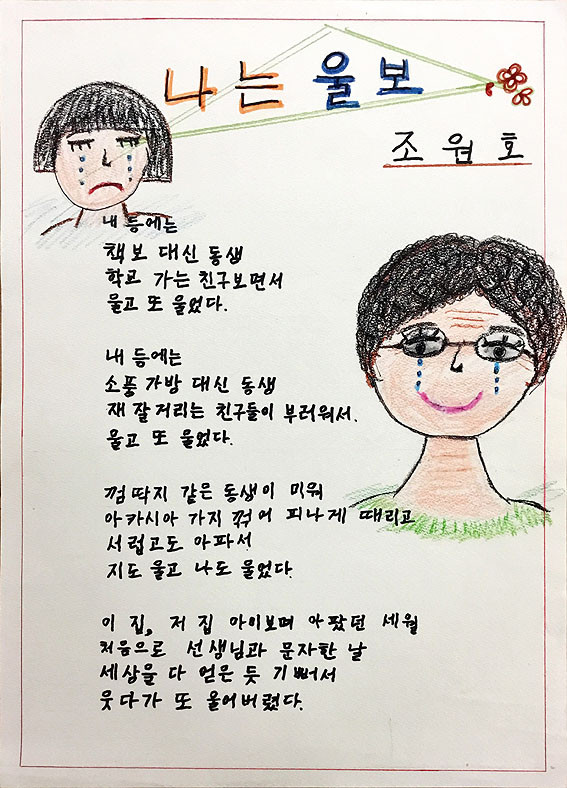 나는 울보
조원호
내 등에는
책보 대신 동생
학교 가는 친구보면서
울고 또 울었다.
내 등에는
소풍 가방 대신 동생
재잘거리는 친구들이 부러워서.
울고 또 울었다.
껌딱지 같은 동생이 미워
아카시아 가지 꺾어 피나게 때리고
서럽고도 아파서
지도 울고 나도 울었다.
이 집, 저 집 아이보며 아팠던 세월
처음으로 선생님과 문자한 날
세상을 다 얻은 듯 기뻐서
웃다가 또 울어버렸다.